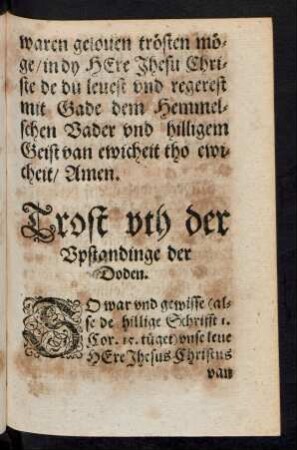 waren gelouen trösten mö-
ge/ in dy HEre Jhesu Chri-
ste de du leuest vnd regerest
mit Gade dem Hemmel-
schen Vader vnd hilligem
Geist van ewicheit tho ewi-
cheit/ Amen.
Trost vth der
Vpstandinge der
Doden.
SO war vnd gewisse (al-
se de hillige Schrifft 1.
Cor. 15. tüget) vnse leue
HEre Jhesus Christus
van